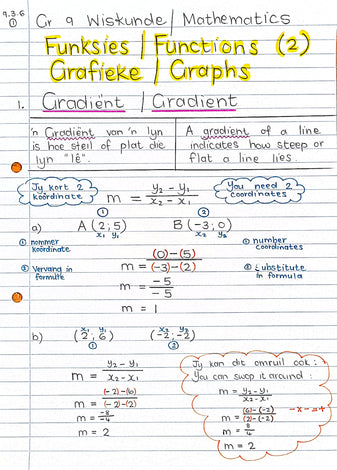 9.3.6
① Gr 9 Wiskunde / Mathematics
Funksies / Functions (2)
Grafieke / Graphs
1. Gradiënt / Gradient
'n Gradiënt van 'n lyn is hoe steil of plat die lyn "lê".
A gradient of a line indicates how steep or flat a line lies.
Jy kort 2 koördinate
m = (y₂ - y₁)/(x₂ - x₁)
You need 2 coordinates
① ②
a) A (2; 5) B (-3; 0)
x₁ y₁ x₂ y₂
① nommer koördinate
① number coordinates
② Vervang in formule
② substitute in formula
m = ((0)-(5))/((-3)-(2))
m = -5/-5
m = 1
x₁ y₁ x₂ y₂
b) (2; 6) (-2; -2)
① ②
m = (y₂ - y₁)/(x₂ - x₁)
m = ((-2)-(6))/((-2)-(2))
m = -8/-4
m = 2
Jy kan dit omruil ook:
You can swop it around:
m = (y₂ - y₁)/(x₂ - x₁)
m = ((6)-(-2))/((2)-(-2))
- x - = +
m = 8/4
m = 2